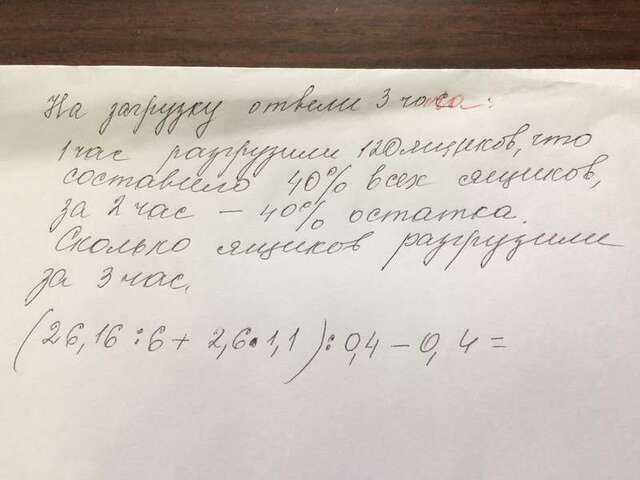 На загрузку отвели 3 часа:
1 час разгрузили 120 ящиков, что
составило 40% всех ящиков,
за 2 час – 40% остатка.
Сколько ящиков разгрузили
за 3 час.
(26,16 : 6 + 2,6 · 1,1) : 0,4 – 0,4 =